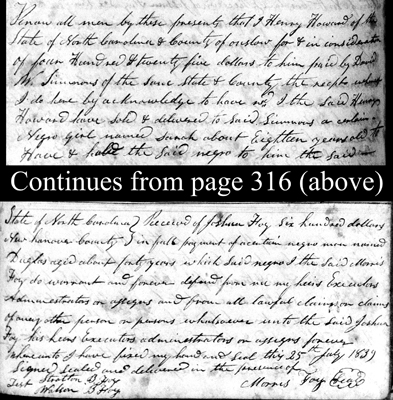 Know all men by these presents that I Henry Howard of the
State of North Carolina & County of onslow for & in consideration
of four Hundred & twenty five dollars to him paid by David
W. Simmons of the same State & County, the rec'pt whereof
I do here by acknowledge to have rec'd I the Said Henry
Howard have sold & delivered to Said Simmons a certain
Negro Girl named Sarah about Eighteen years old to
Have & hold the Said negro to him the said
Continues from page 316 (above)
State of North Carolina } Received of Joshua Foy Six hundred dollars
New hanover County } in full payment of a certain negro man named
Duglas aged about forty years which Said negro I the Said Morris
Foy do warrant and forever defend from me my heirs Executors
Administrators or assigns and from all lawful claim or claims
of any other person or persons whatsoever unto the Said Joshua
Foy his heirs Executors administrators or assigns forever
I have fixed my hand and seal this 25th July 1839
Signed sealed and delivered in the presence of
Test Stratton B Foy Morris Foy Seal
Watson B Foy